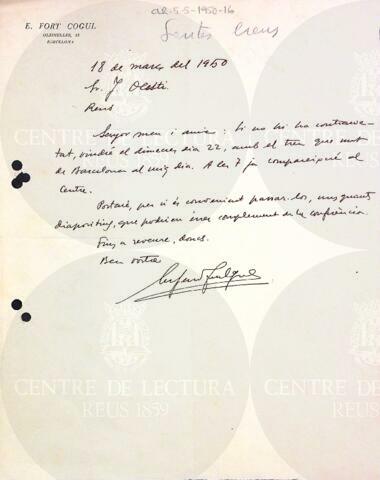 a2-5-5-1950-16
E. FORT COGUL
BARCELONA
Santes Creus
18 de març del 1950
Sr. J. Olesti
Reus
Senyor meu i amic: Si no hi ha contrarie-
tat, vindré el dimecres dia 22, amb el tren que surt
de Barcelona al mig dia. A les 7 ja compareixeré al
Centre.
Portaré, per si és convenient passar-los, uns quants
diapositius, que podrien ésser complement de la conferència.
Fins a reveure, doncs.
Ben vostre
CENTRE DE LECTURA
REUS 1859
CENTRE DE LECTURA
REUS 1859